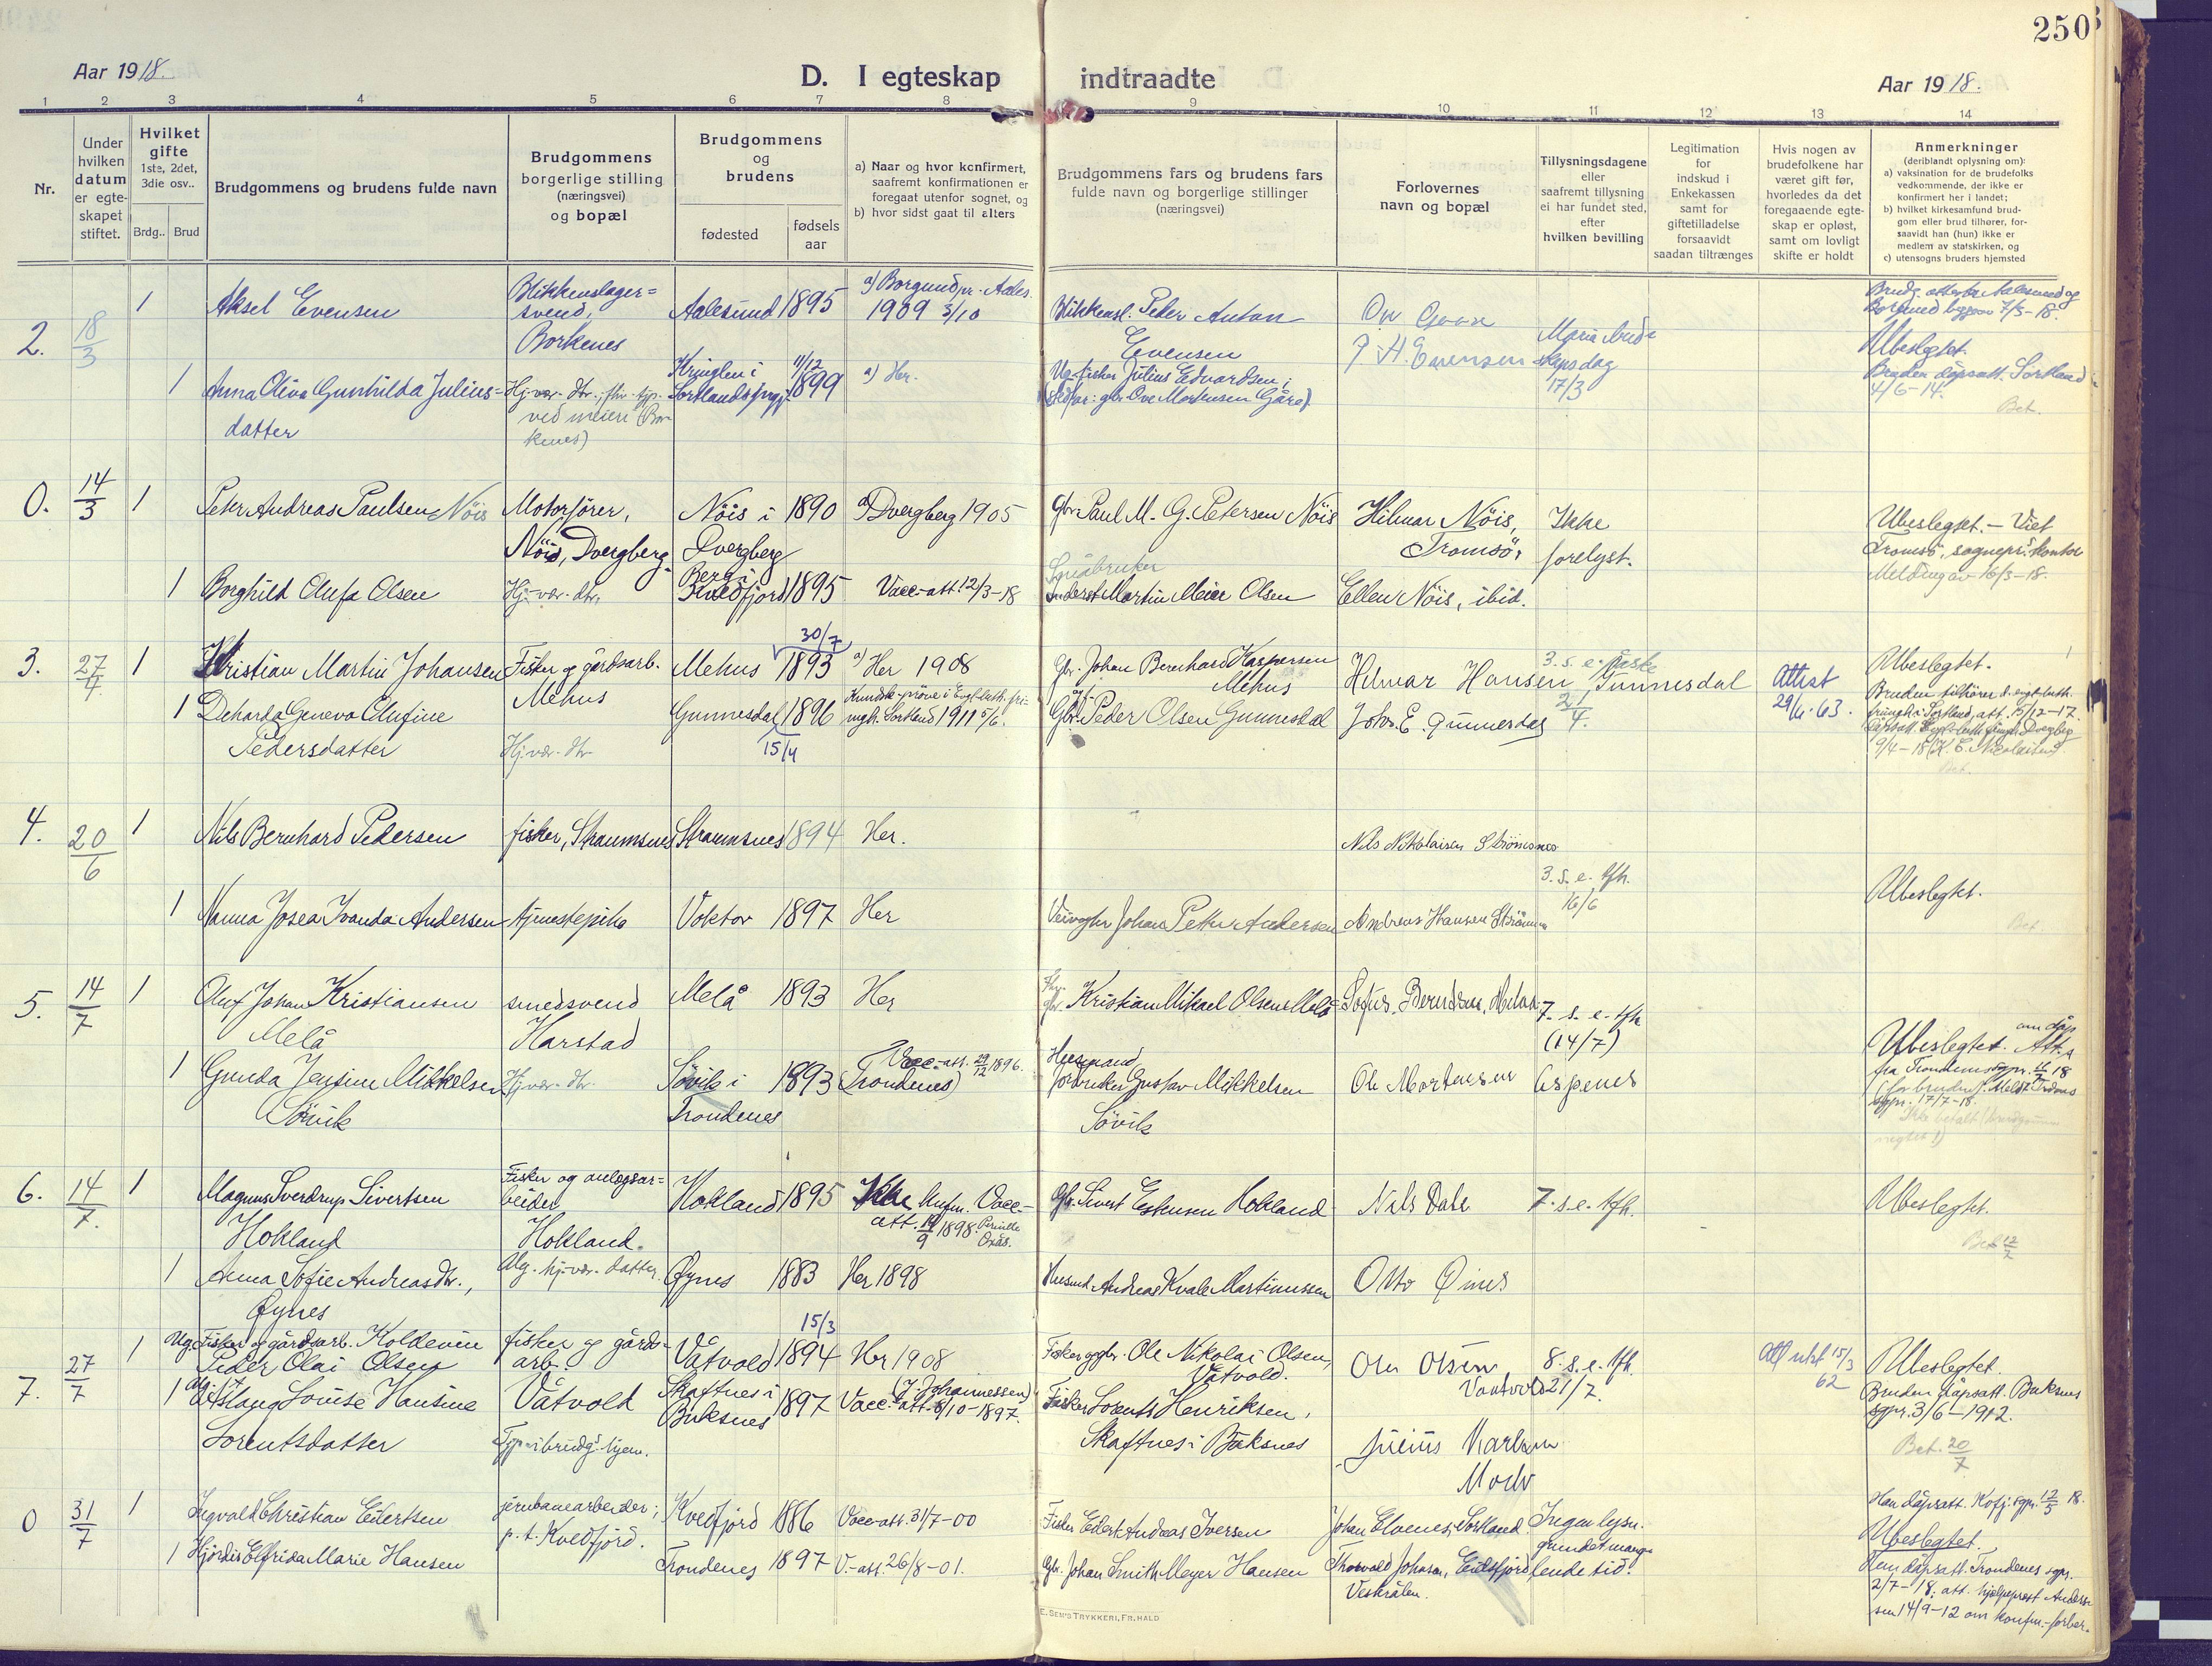 250
Aar 1918.
D. I egteskap indtraadte
Aar 1918.
1 2 3 4 5 6 7 8 9 10 11 12 13 14
Nr.
Under hvilken datum er egte-skapet stiftet.
Hvilket gifte
1ste, 2det, 3die osv..
Brdg.. Brud
Brudgommens og brudens fulde navn
Brudgommens borgerlige stilling (næringsvei) og bopæl
Brudgommens og brudens
fødested
fødsels aar
a) Naar og hvor konfirmert, saafremt konfirmationen er foregaat utenfor sognet, og
b) hvor sidst gaat til alters
Brudgommens fars og brudens fars fulde navn og borgerlige stillinger (næringsvei)
Forlovernes navn og bopæl
Tillysningsdagene eller saafremt tillysning ei har fundet sted, efter hvilken bevilling
Legitimation for indskud i Enkekassen samt for giftetilladelse forsaavidt saadan tiltrænges
Hvis nogen av brudefolkene har været gift før, hvorledes da det foregaaende egte-skap er opløst, samt om lovligt skifte er holdt
Anmerkninger
(deriblandt oplysning om):
a) vaksination for de brudefolks vedkommende, der ikke er konfirmert her i landet;
b) hvilket kirkesamfund brud-gom eller brud tilhører, for-saavidt han (hun) ikke er medlem av statskirken, og
c) utensogns bruders hjemsted
2. 18/3 1 Aksel Evensen Blikkenslager=svend, Borkenes Aalesund 1895 a) Borgund pr. Aales. 1909 3/10 Blikkensl. Peder Anton Evensen
Maria bude skaps dag 17/3
Ubeslegtet.
1 Anna Oliva Gunhilda Julius=datter Hj. vær. dtr. ved meieri (Borkenes) Kringlen i 11/12 1899 a) Her. Ug. fisker Julius Edvardsen
Bruden dåpsatt. Sortland 4/6-14.
Bet.
0. 14/3 1 Peter Andreas Paulsen Nöis Motorfører, Nöis, Dverberg Nöis i Dverberg 1890 a) Dverberg 1905 Gbr. Paul M. G. Petersen Nöis Hilmar Nöis, Tromsö, Ikke forelyst.
Ubeslegtet. - Viet Tromsö, sognepr.s kontor
Melding av 16/3-18.
1 Borghild Olufa Olsen Hj. vær. dtr. Berg i Kvedfjord 1895 Vacc-att. 12/3-18 Martin Meier Olsen Ellen Nöis, ibid.
3. 27/4 1 Kristian Martin Johansen Fisker og gårdsarb. Mehus Mehus 30/7 1893 a) Her 1908 Gbr. Johan Bernhard Kaspersen Mehus Hilmar Hansen Gunnesdal 3. s. e. påske 21/4.
Attest 29/6-63.
Ubeslegtet.
1 Deharda Geneva Olufine Pedersdatter Hj. vær. dtr. Gunnesdal 1896 15/4 Sortland 1911 5/6. Gbr. Peder Olsen Gunnesdal Johs. E. Gunnesdal
Bruden tilhører d. ev. luth. frimgh. i Sortland, att. 15/12-17.
9/4-18 (K. E. Nicolaisen).
Bet.
4. 20/6 1 Nils Bernhard Pedersen fisker, Straumsnes Straumsnes 1894 Her. Nils Nikolaisen Strömsnes
3. s. e. tfh. 16/6
Ubeslegtet.
1 Nanna Josea Ivanda Andersen tjenestepike Voktor 1897 Her Veivogter Johan Petter Andersen Andreas Hansen
Bet.
5. 14/7 1 Oluf Johan Kristiansen Melå smedsvend Harstad Melå 1893 Her Kristian Mikael Olsen Melå Sofus Berntsen, 7. s. e. tfh (14/7)
1 Gunda Jensine Mikkelsen Sörvik Hj. vær. dtr. Sörvik i Trondenes 1893 Vacc-att. 29/12 1896. (Trondenes) Husmand Gustav Mikkelsen Sörvik Ole Mortensen Aspenes
Ubeslegtet. Att. om dåp fra Trondenes
17/7-18.
6. 14/7. 1 Magnus Sverdrup Sivertsen Hokland Fisker og anlægsar=beider Hokland. Hokland 1895 Ikke konfm. Vacc-att. 19/9 1898. Gbr. Sivert Eskensen Hokland Nils Dale 7. s. e. tfh.
Ubeslegtet.
Bet 12/7
1 Anna Sofie Andreasdtr., Øynes Ug. hj. vær. datter. Øynes 1883 Her 1898 Husmd. Andreas Kvale Martinussen Otto Öines
7. 27/7 1 Ug. Fisker og gårdsarb. Koldevin Peder Olai Olsen fisker og gårds-arb. Våtvold Våtvold 15/3 1894 Her 1908 Fisker og gbr. Ole Nikolai Olsen, Våtvold. Ole Olsen Vaatvold 8. s. e. tfh. 21/7.
Att utst 15/3 62
Ubeslegtet.
1 Aslaug Louise Hansine Lorentsdatter Tjp. i brudg.s hjem. Skaftnes i Buksnes 1897 (J. Johannessen) Vacc.-att. 8/10-1897. Fisker Lorents Henriksen, Skaftnes i Buksnes Julius Karlsen
Bruden dåpsatt. Buksnes sgpr. 3/6-1912.
Bet. 20/7
0 31/7 1 Ingvald Christian Eilertsen jernbanearbeider; p. t. Kvedfjord. Kvedfjord 1886 Vacc-att. 31/7-00 Fisker Eilert Andreas Iversen Johan Elvenes, Sortland. Ingen lysn. grundet mang-lende tid.
Han dåpsatt. Kvfj. sgpr. 12/5 18.
Ubeslegtet.
1 Hjördis Elfrida Marie Hansen Trondenes 1897 V.-att. 26/8-01. Gbr. Johan Smith Meyer Hansen Thorvald Johnsen, Eidsfjord, Vesterålen.
dåpsatt. Trondenes sgpr. 2/7-18; att. hjælpeprest Anders-sen 14/9-12 om konfm.-forber.
E. SEM'S TRYKKERI, FR.HALD